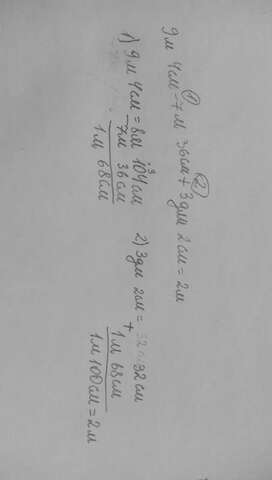 9м 4см - 7м 36см + 3дм 2см = 2м
1) 9м 4см = 8м 104см
- 7м 36см
1м 68см
2) 3дм 2см = 32см
+ 1м 68см
1м 100см = 2м